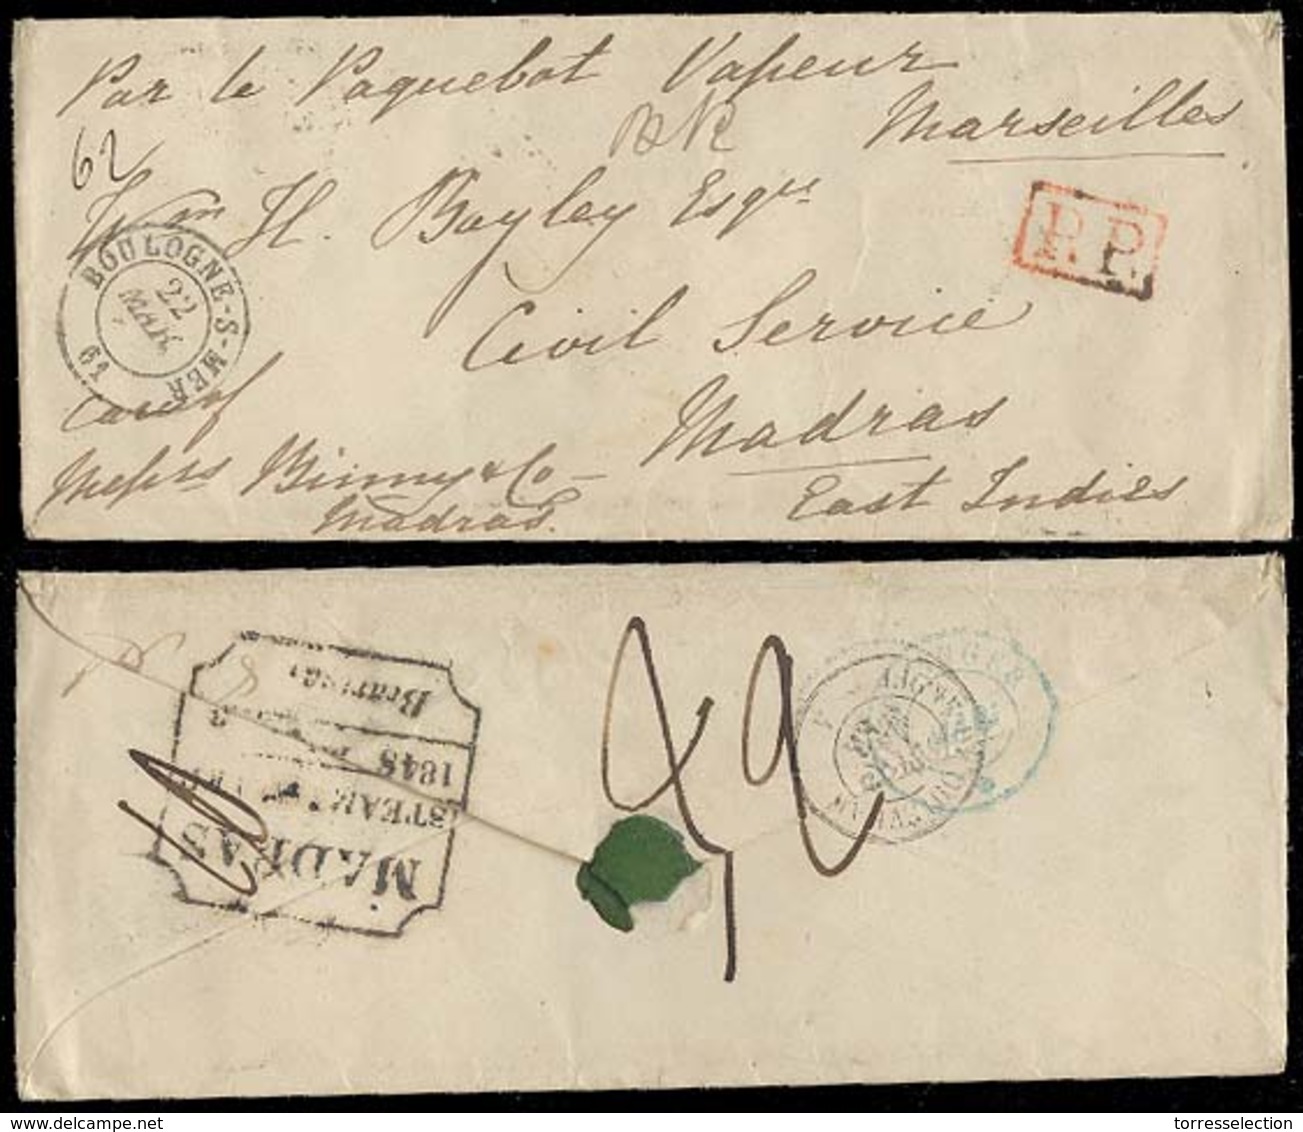 Par le Paquebot Vapeur
Marseilles
62
Wm H. Bayley Esqre
P.P.
BOULOGNE-S-MER
22
MAR
61
Civil Service
Madras
East Indies
Care of
Messrs Binny & Co
Madras
Bearing
1848
STEAM
MADRAS
42
delcampe.net
torresselection